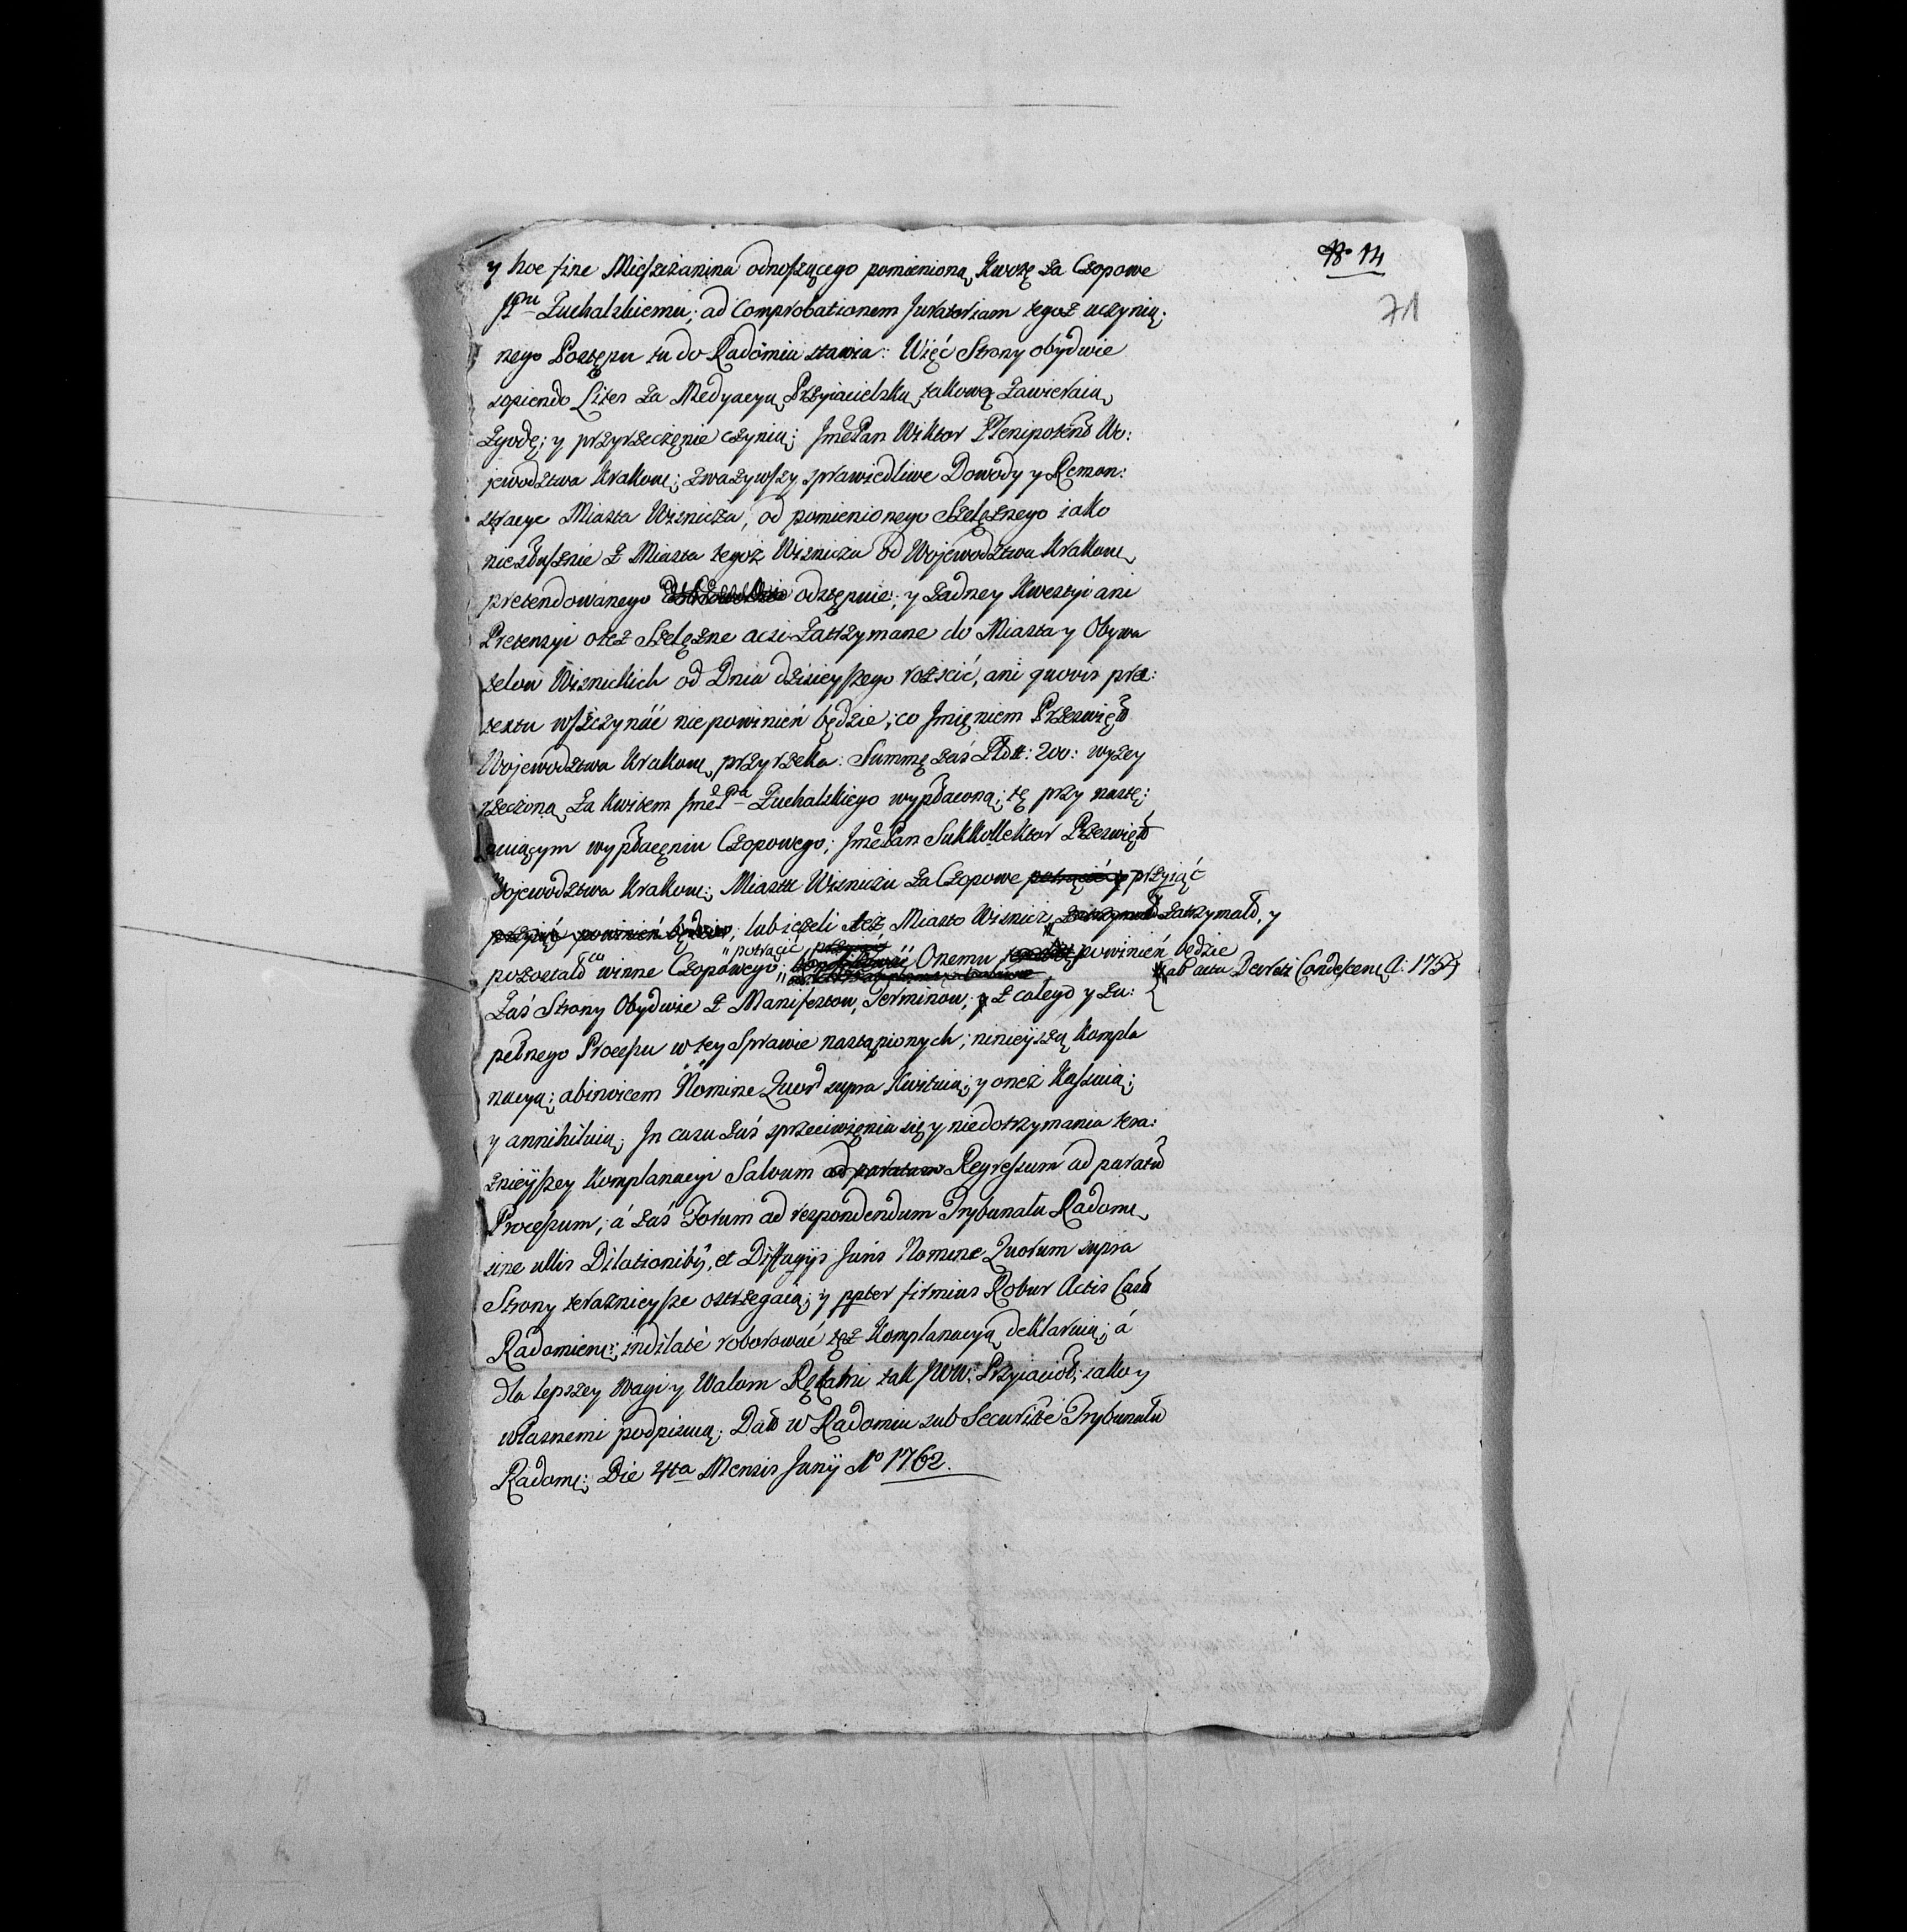 No 14
71
y hoc fine Mieszczanina odnoszącego pomienioną Kwotę za Czopowe
Jpnu Zuchalskiemu; ad Comprobationem Juratoriam tegoż uczynio:
nego Postępu tu do Radomia stawia: Więc Strony obydwie
sopiendo Lites za Medyacyą Przyiacielską takową zawieraią
Zgodę; y przyrzeczęnie czynią; JmćPan Wiktor Plenipotent Wo:
jewodztwa Krakow; zważywszy sprawiedliwe Dowody y Remon:
stracye Miasta Wisnicza, od pomienionego Szelężnego iako
niesłusznie z Miasta tegoż Wisnicza od Wojewodztwa Krakow
pretendowanego odstępuie; y żadney Kwestyi ani
Pretensyi oteż Szelężne aczi Zatrzymane do Miasta y Obywa
telow Wisnickich od Dnia dzisieyszego rościć, ani quovis prae:
textu wszczynać niepowinień będzie; co Jmięniem Prześwięt
Wojewodztwa Krakow przyrzeka: Summę zaś Złot: 200: wyżey
rzeczoną za Kwitem JmćPa Zuchalskiego wypłaconą; tę przy nastę:
puiącym wypłacęniu Czopowego; JmćPan Sukkollektor Prześwięt
Wojewodztwa Krakow; Miastu Wisniczu za Czopowe potrącić y przyiąć
przyiąć powinień będzie; lub ieżeli też Miasto Wisnicz zatrzymał, y
pozostało winne Czopowego; potrącić Onemu powinień będzie
ab actu Decreti Condescen A: 1757
Zaś Strony Obydwie z Manifestow, Terminow, y z całego y zu:
pełnego Processu w tey Sprawie nastąpionych; ninieyszą Kompla
nacyą; abinvicem Nomine Quor supra Kwituią; y oneż Kassuią;
y annihiluią; In casu zaś sprzeciwięnia się y niedotrzymania tera:
znieyszey Komplanacyi Salvum ad paratum Regressum ad parat
Processum; á zaś Forum ad respondendum Trybunału Radom
sine ullis Dilationibs, et Diffugijs Juris Nomine Quorum supra
Strony teraznieysze ostrzegaią; y ppter firmius Robur Actis Cast
Radomien; indilatè roborować też Komplanacyą deklaruią; á
dla lepszey wagi y Walom Rękami tak JWW. Przyiacioł; iako y
własnemi podpisuią; Dat w Radomiu sub Securitte Trybunału
Radom: Die 4ta Mensis Junij Ao 1762.